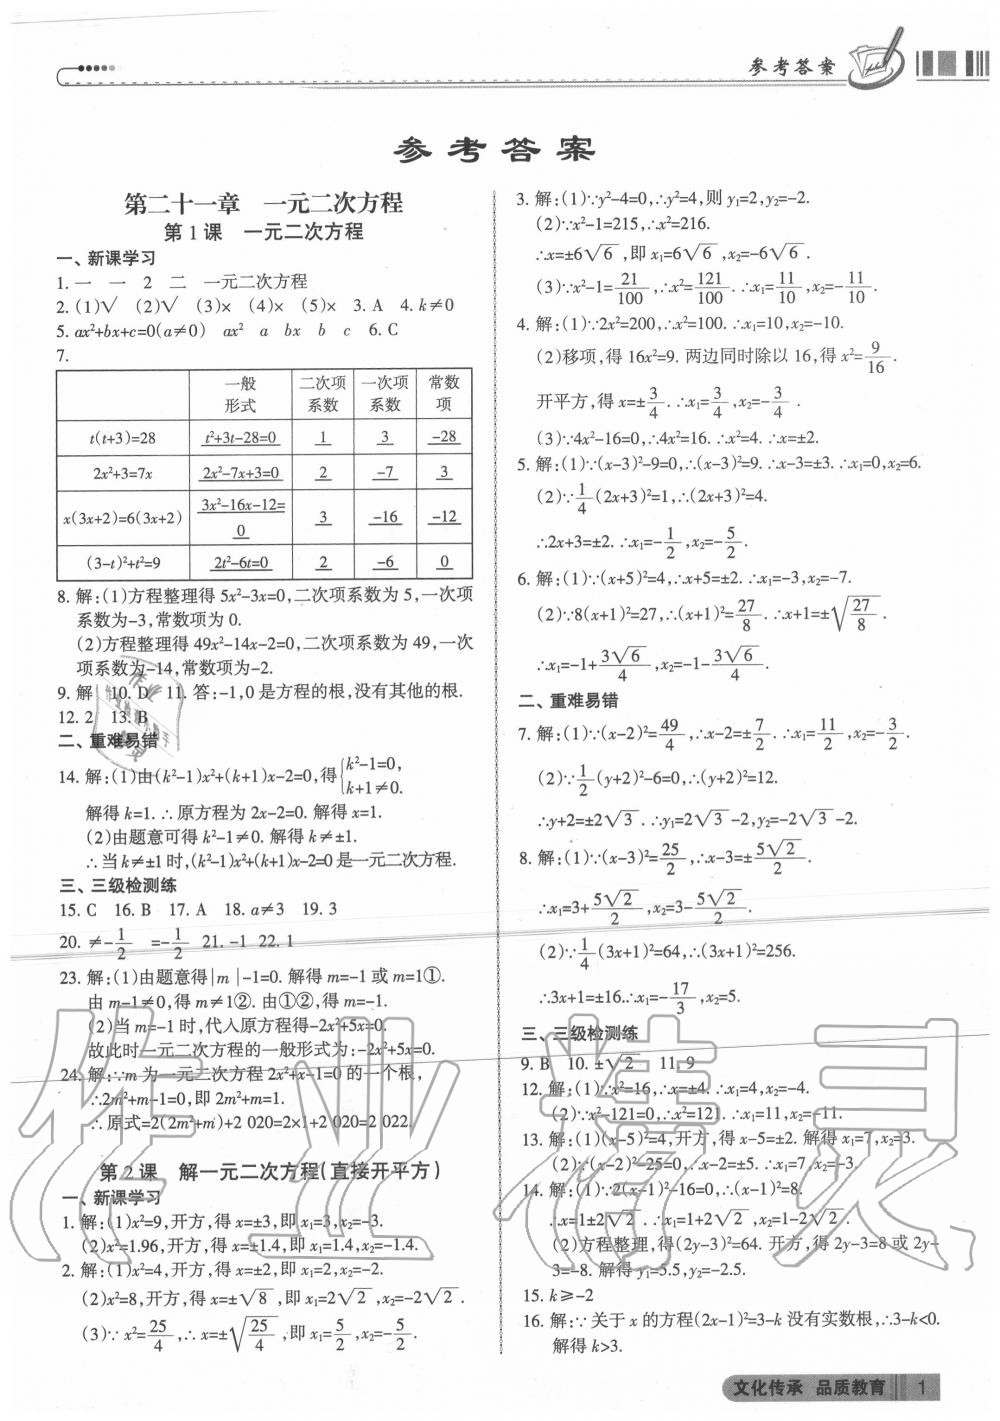 参考答案
参考答案
第二十一章 一元二次方程
第1课 一元二次方程
一、新课学习
1. 一 一 2 二 一元二次方程
2. (1)√ (2)√ (3)× (4)× (5)× 3. A 4. k≠0
5. ax²+bx+c=0(a≠0) ax² a bx b c 6. C
7.
一般形式 二次项系数 一次项系数 常数项
t(t+3)=28 t²+3t-28=0 1 3 -28
2x²+3=7x 2x²-7x+3=0 2 -7 3
x(3x+2)=6(3x+2) 3x²-16x-12=0 3 -16 -12
(3-t)²+t²=9 2t²-6t=0 2 -6 0
8. 解:(1)方程整理得 5x²-3x=0,二次项系数为 5,一次项
系数为-3,常数项为 0.
(2)方程整理得 49x²-14x-2=0,二次项系数为 49,一次
项系数为-14,常数项为-2.
9. 解 10. D 11. 答:-1,0 是方程的根,没有其他的根.
12. 2 13. B
二、重难易错
14. 解:(1)由(k²-1)x²+(k+1)x-2=0,得{k²-1=0,
k+1≠0.
解得 k=1. ∴原方程为 2x-2=0. 解得 x=1.
(2)由题意可得 k²-1≠0. 解得 k≠±1.
∴当 k≠±1 时,(k²-1)x²+(k+1)x-2=0 是一元二次方程.
三、三级检测练
15. C 16. B 17. A 18. a≠3 19. 3
20. ≠-1/2 =-1/2 21. -1 22. 1
23. 解:(1)由题意得|m|-1=0. 解得 m=-1 或 m=1①.
由 m-1≠0,得 m≠1②. 由①②,得 m=-1.
(2)当 m=-1 时,代入原方程得-2x²+5x=0.
故此时一元二次方程的一般形式为:-2x²+5x=0.
24. 解:∵m 为一元二次方程 2x²+x-1=0 的一个根,
∴2m²+m-1=0,即 2m²+m=1.
∴原式=2(2m²+m)+2 020=2×1+2 020=2 022.
第2课 解一元二次方程(直接开平方)
一、新课学习
1. 解:(1)x²=9,开方,得 x=±3,即 x₁=3,x₂=-3.
(2)x²=1.96,开方,得 x=±1.4,即 x₁=1.4,x₂=-1.4.
2. 解:(1)x²=4,开方,得 x=±2,即 x₁=2,x₂=-2.
(2)x²=8,开方,得 x=±√8,即 x₁=2√2,x₂=-2√2.
(3)∵x²=25/4,∴x=±√(25/4),即 x₁=5/2,x₂=-5/2.
3. 解:(1)∵y²-4=0,∴y²=4,则 y₁=2,y₂=-2.
(2)∵x²-1=215,∴x²=216.
∴x=±6√6,即 x₁=6√6,x₂=-6√6.
(3)∵x²-1=21/100,∴x²=121/100. ∴x₁=11/10,x₂=-11/10.
4. 解:(1)∵2x²=200,∴x²=100. ∴x₁=10,x₂=-10.
(2)移项,得 16x²=9. 两边同时除以 16,得 x²=9/16.
开平方,得 x=±3/4. ∴x₁=3/4,x₂=-3/4.
(3)∵4x²-16=0,∴4x²=16. ∴x²=4. ∴x=±2.
5. 解:(1)∵(x-3)²-9=0,∴(x-3)²=9. ∴x-3=±3. ∴x₁=0,x₂=6.
(2)∵1/4(2x+3)²=1,∴(2x+3)²=4.
∴2x+3=±2. ∴x₁=-1/2,x₂=-5/2.
6. 解:(1)∵(x+5)²=4,∴x+5=±2. ∴x₁=-3,x₂=-7.
(2)∵8(x+1)²=27,∴(x+1)²=27/8. ∴x+1=±√(27/8).
∴x₁=-1+3√6/4,x₂=-1-3√6/4.
二、重难易错
7. 解:(1)∵(x-2)²=49/4,∴x-2=±7/2. ∴x₁=11/2,x₂=-3/2.
(2)∵1/2(y+2)²-6=0,∴(y+2)²=12.
∴y+2=±2√3. ∴y₁=2√3-2,y₂=-2√3-2.
8. 解:(1)∵(x-3)²=25/2,∴x-3=±5√2/2.
∴x₁=3+5√2/2,x₂=3-5√2/2.
(2)∵1/4(3x+1)²=64,∴(3x+1)²=256.
∴3x+1=±16. ∴x₁=-17/3,x₂=5.
三、三级检测练
9. B 10. ±√2 11. 9
12. 解:(1)∵x²=16,∴x=±4. ∴x₁=4,x₂=-4.
(2)∵x²-121=0,∴x²=121. ∴x₁=11,x₂=-11.
13. 解:(1)(x-5)²=4,开方,得 x-5=±2. 解得 x₁=7,x₂=3.
(2)∵(x-2)²=25,∴x-2=±5. ∴x₁=7,x₂=-3.
14. 解:(1)∵2(x-1)²-16=0,∴(x-1)²=8.
∴x=1±2√2. ∴x₁=1+2√2,x₂=1-2√2.
(2)方程整理,得(2y-3)²=64. 开方,得 2y-3=8 或 2y-
3=-8. 解得 y₁=5.5,y₂=-2.5.
15. k≥-2
16. 解:∵关于 x 的方程(2x-1)²=3-k 没有实数根,∴3-k<0.
解得 k>3.
文化传承 品质教育 1
作业精灵